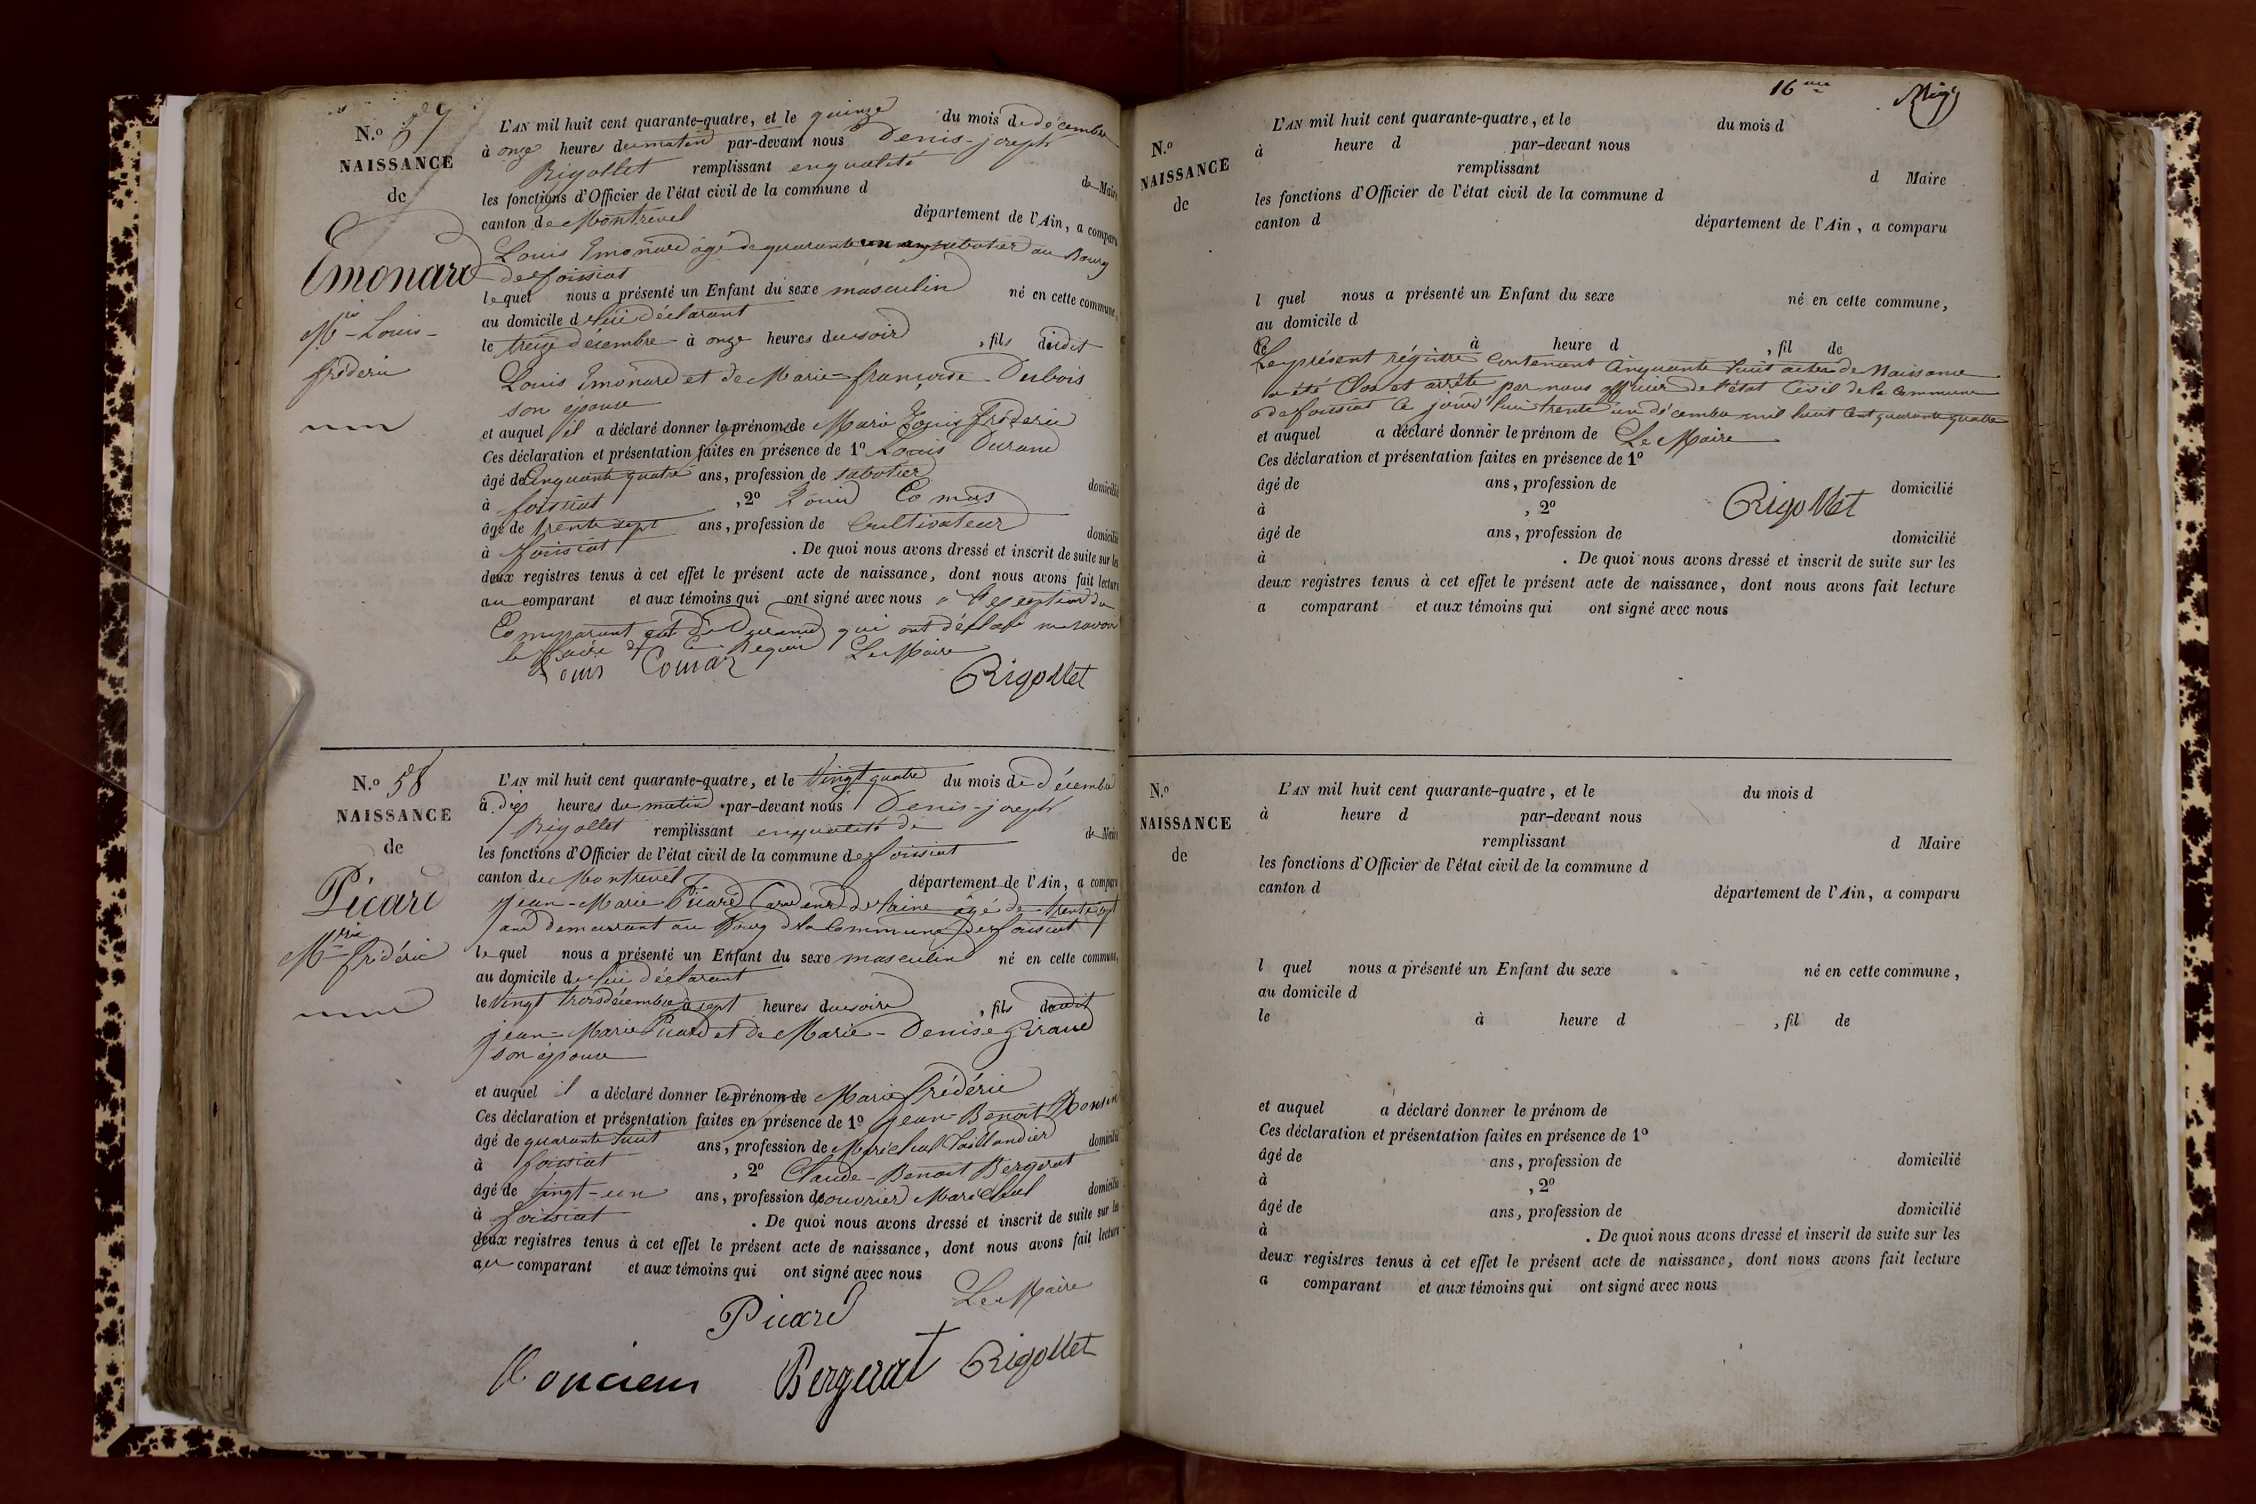 N.º 57
NAISSANCE
de
Emonard
Mie-Louis-
frédéric
L'AN mil huit cent quarante-quatre, et le quinze du mois de décembre
à onze heures du matin par-devant nous Denis-joseph
Rigollet remplissant en qualité de Maire
les fonctions d'Officier de l'état civil de la commune d
canton de Montrevel département de l'Ain, a comparu
Louis Emonard âgé de quarante un ans sabotier au Bourg
de foissiat
lequel nous a présenté un Enfant du sexe masculin né en cette commune,
au domicile de lui déclarant
le treize décembre à onze heures du soir, fils dudit
Louis Emonard et de Marie-françoise Dubois
son épouse
et auquel il a déclaré donner le prénom de Marie Louis Fréderic
Ces déclaration et présentation faites en présence de 1º Louis Durand
âgé de Cinquante quatre ans, profession de sabotier domicilié
à foissiat, 2º Louis Comas
âgé de trente sept ans, profession de Cultivateur domicilié
à foissiat. De quoi nous avons dressé et inscrit de suite sur les
deux registres tenus à cet effet le présent acte de naissance, dont nous avons fait lecture
au comparant et aux témoins qui ont signé avec nous à l'exception du
Comparant et de Durand qui ont déclaré ne savoir
le faire de ce Requis Le Maire
Louis Comaz Rigollet
N.º 58
NAISSANCE
de
Picard
Mrie frédéric
L'AN mil huit cent quarante-quatre, et le vingt quatre du mois de décembre
à dix heures du matin par-devant nous Denis-joseph
Rigollet remplissant en qualité de de Maire
les fonctions d'Officier de l'état civil de la commune de foissiat
canton de Montrevel département de l'Ain, a comparu
jean-Marie Picard Cardeur de laine âgé de trente sept
ans demeurant au Bourg de la Commune de foissiat
lequel nous a présenté un Enfant du sexe masculin né en cette commune,
au domicile de lui déclarant
le vingt trois décembre à sept heures du soir, fils dudit
jean-Marie Picard et de Marie-Denise Giraud
son épouse
et auquel il a déclaré donner le prénom de Marie frédéric
Ces déclaration et présentation faites en présence de 1º jean-Benoit
âgé de quarante huit ans, profession de Maréchal Taillandier domicilié
à foissiat, 2º Claude-Benoit Bergerat
âgé de vingt-un ans, profession de ouvrier Maréchal domicilié
à foissiat. De quoi nous avons dressé et inscrit de suite sur les
deux registres tenus à cet effet le présent acte de naissance, dont nous avons fait lecture
au comparant et aux témoins qui ont signé avec nous
Picard Le Maire
Bergerat Rigollet
16me
N.º
NAISSANCE
de
L'AN mil huit cent quarante-quatre, et le du mois d
à heure d par-devant nous
remplissant d Maire
les fonctions d'Officier de l'état civil de la commune d
canton d département de l'Ain, a comparu
l quel nous a présenté un Enfant du sexe né en cette commune,
au domicile d
le à heure d, fil de
Le présent régistre Contenant Cinquante huit actes de Naissance
a été Clos et arrêté par nous officier de l'état Civil de la Commune
de foissiat Ce jourd'hui trente un décembre mil huit Cent quarante quatre
et auquel a déclaré donner le prénom de Le Maire
Ces déclaration et présentation faites en présence de 1º
âgé de ans, profession de domicilié
à, 2º Rigollet
âgé de ans, profession de domicilié
à. De quoi nous avons dressé et inscrit de suite sur les
deux registres tenus à cet effet le présent acte de naissance, dont nous avons fait lecture
a comparant et aux témoins qui ont signé avec nous
N.º
NAISSANCE
de
L'AN mil huit cent quarante-quatre, et le du mois d
à heure d par-devant nous
remplissant d Maire
les fonctions d'Officier de l'état civil de la commune d
canton d département de l'Ain, a comparu
l quel nous a présenté un Enfant du sexe né en cette commune,
au domicile d
le à heure d, fil de
et auquel a déclaré donner le prénom de
Ces déclaration et présentation faites en présence de 1º
âgé de ans, profession de domicilié
à, 2º
âgé de ans, profession de domicilié
à. De quoi nous avons dressé et inscrit de suite sur les
deux registres tenus à cet effet le présent acte de naissance, dont nous avons fait lecture
a comparant et aux témoins qui ont signé avec nous